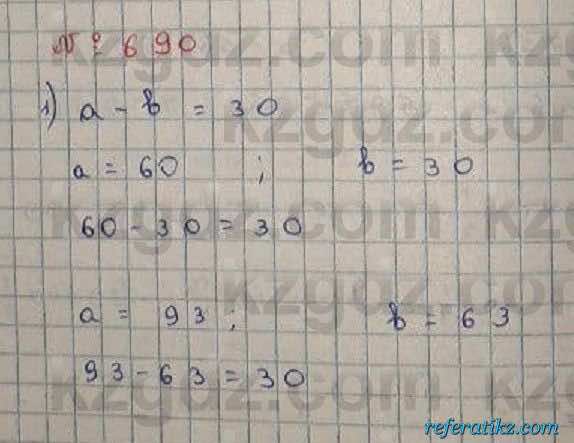 № 690
1) a - b = 30
a = 60 ; b = 30
60 - 30 = 30
a = 93 ; b = 63
93 - 63 = 30
referatikz.com
kzgdz.com